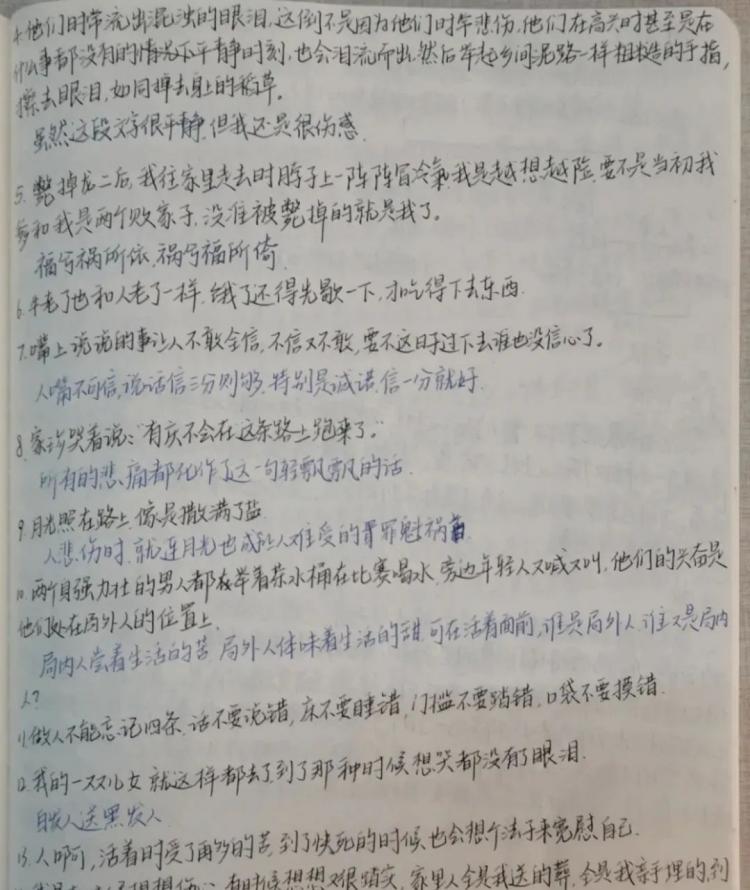 4.他们时常流出混浊的眼泪,这倒不是因为他们时常悲伤,他们在高兴时甚至是在
什么事都没有的情况下平静时刻,也会泪流而出,然后举起乡间泥路一样粗糙的手指,
擦去眼泪,如同掸去身上的稻草。
虽然这段文字很平静,但我还是很伤感.
5.毙掉龙二后,我往家里走去时脖子上一阵阵冒冷氣,我是越想越险,要不是当初我
爹和我是两个败家子,没准被毙掉的就是我了。
福兮祸所依,祸兮福所倚.
6.牛老了也和人老了一样,饿了还得先歇一下,才吃得下去东西.
7.嘴上说说的事让人不敢全信,不信又不敢,要不这日子过下去谁也没信心了。
人嘴不可信,说话信三分则够.特别是诚诺,信一分就好.
8.家珍哭着说:“有庆不会在这条路上跑来了。”
所有的悲痛都化作了这一句轻飘飘的话.
9.月光照在路上,像是撒满了盐.
人悲伤时,就连月光也成让人难受的罪罪魁祸首.
10.两个身强力壮的男人都在举着茶水桶在比赛喝水,旁边年轻人又喊又叫,他们的兴奋是
他们处在局外人的位置上.
局内人尝着生活的苦,局外人体味着生活的甜.可在活着面前,谁是局外人,谁又是局内
人?
11.做人不能忘记四条,话不要说错,床不要睡错,门槛不要踏错,口袋不要摸错.
12.我的一双儿女就这样都去了,到了那种时候想哭都没有了眼泪.
白发人送黑发人.
13.人啊,活着时受了再多的苦,到了快死的时候也会想个法子来宽慰自己.
有时候想想又很踏实,家里人全是我送的葬,全是我亲手埋的,到